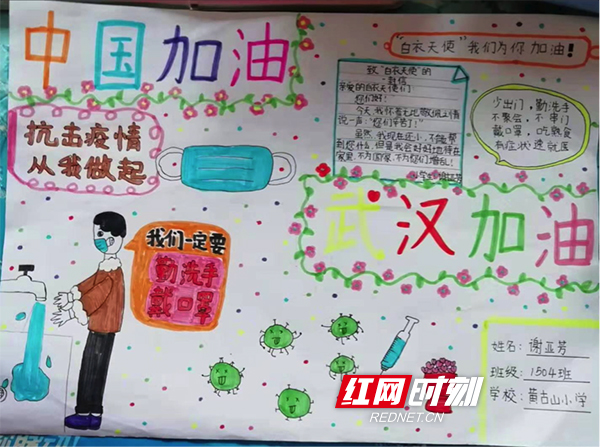 中国加油
抗击疫情
从我做起
我们一定要
勤洗手
戴口罩
"白衣天使"我们为你加油!
致"白衣天使"的
一封信
亲爱的白衣天使们
您们好!
今天,我怀着无比敬
说一声:"您们辛苦了!"
虽然,我现在还小,不能帮
到您什么,但是我会好好地待在
家里,不为国家、不为您们增乱!
少出门,勤洗手
不聚会,不串门
戴口罩,吃熟食
有症状速就医
武汉加油
姓名:谢亚芳
班级:1504班
学校:黄古山小学
红网时刻
REDNET.CN